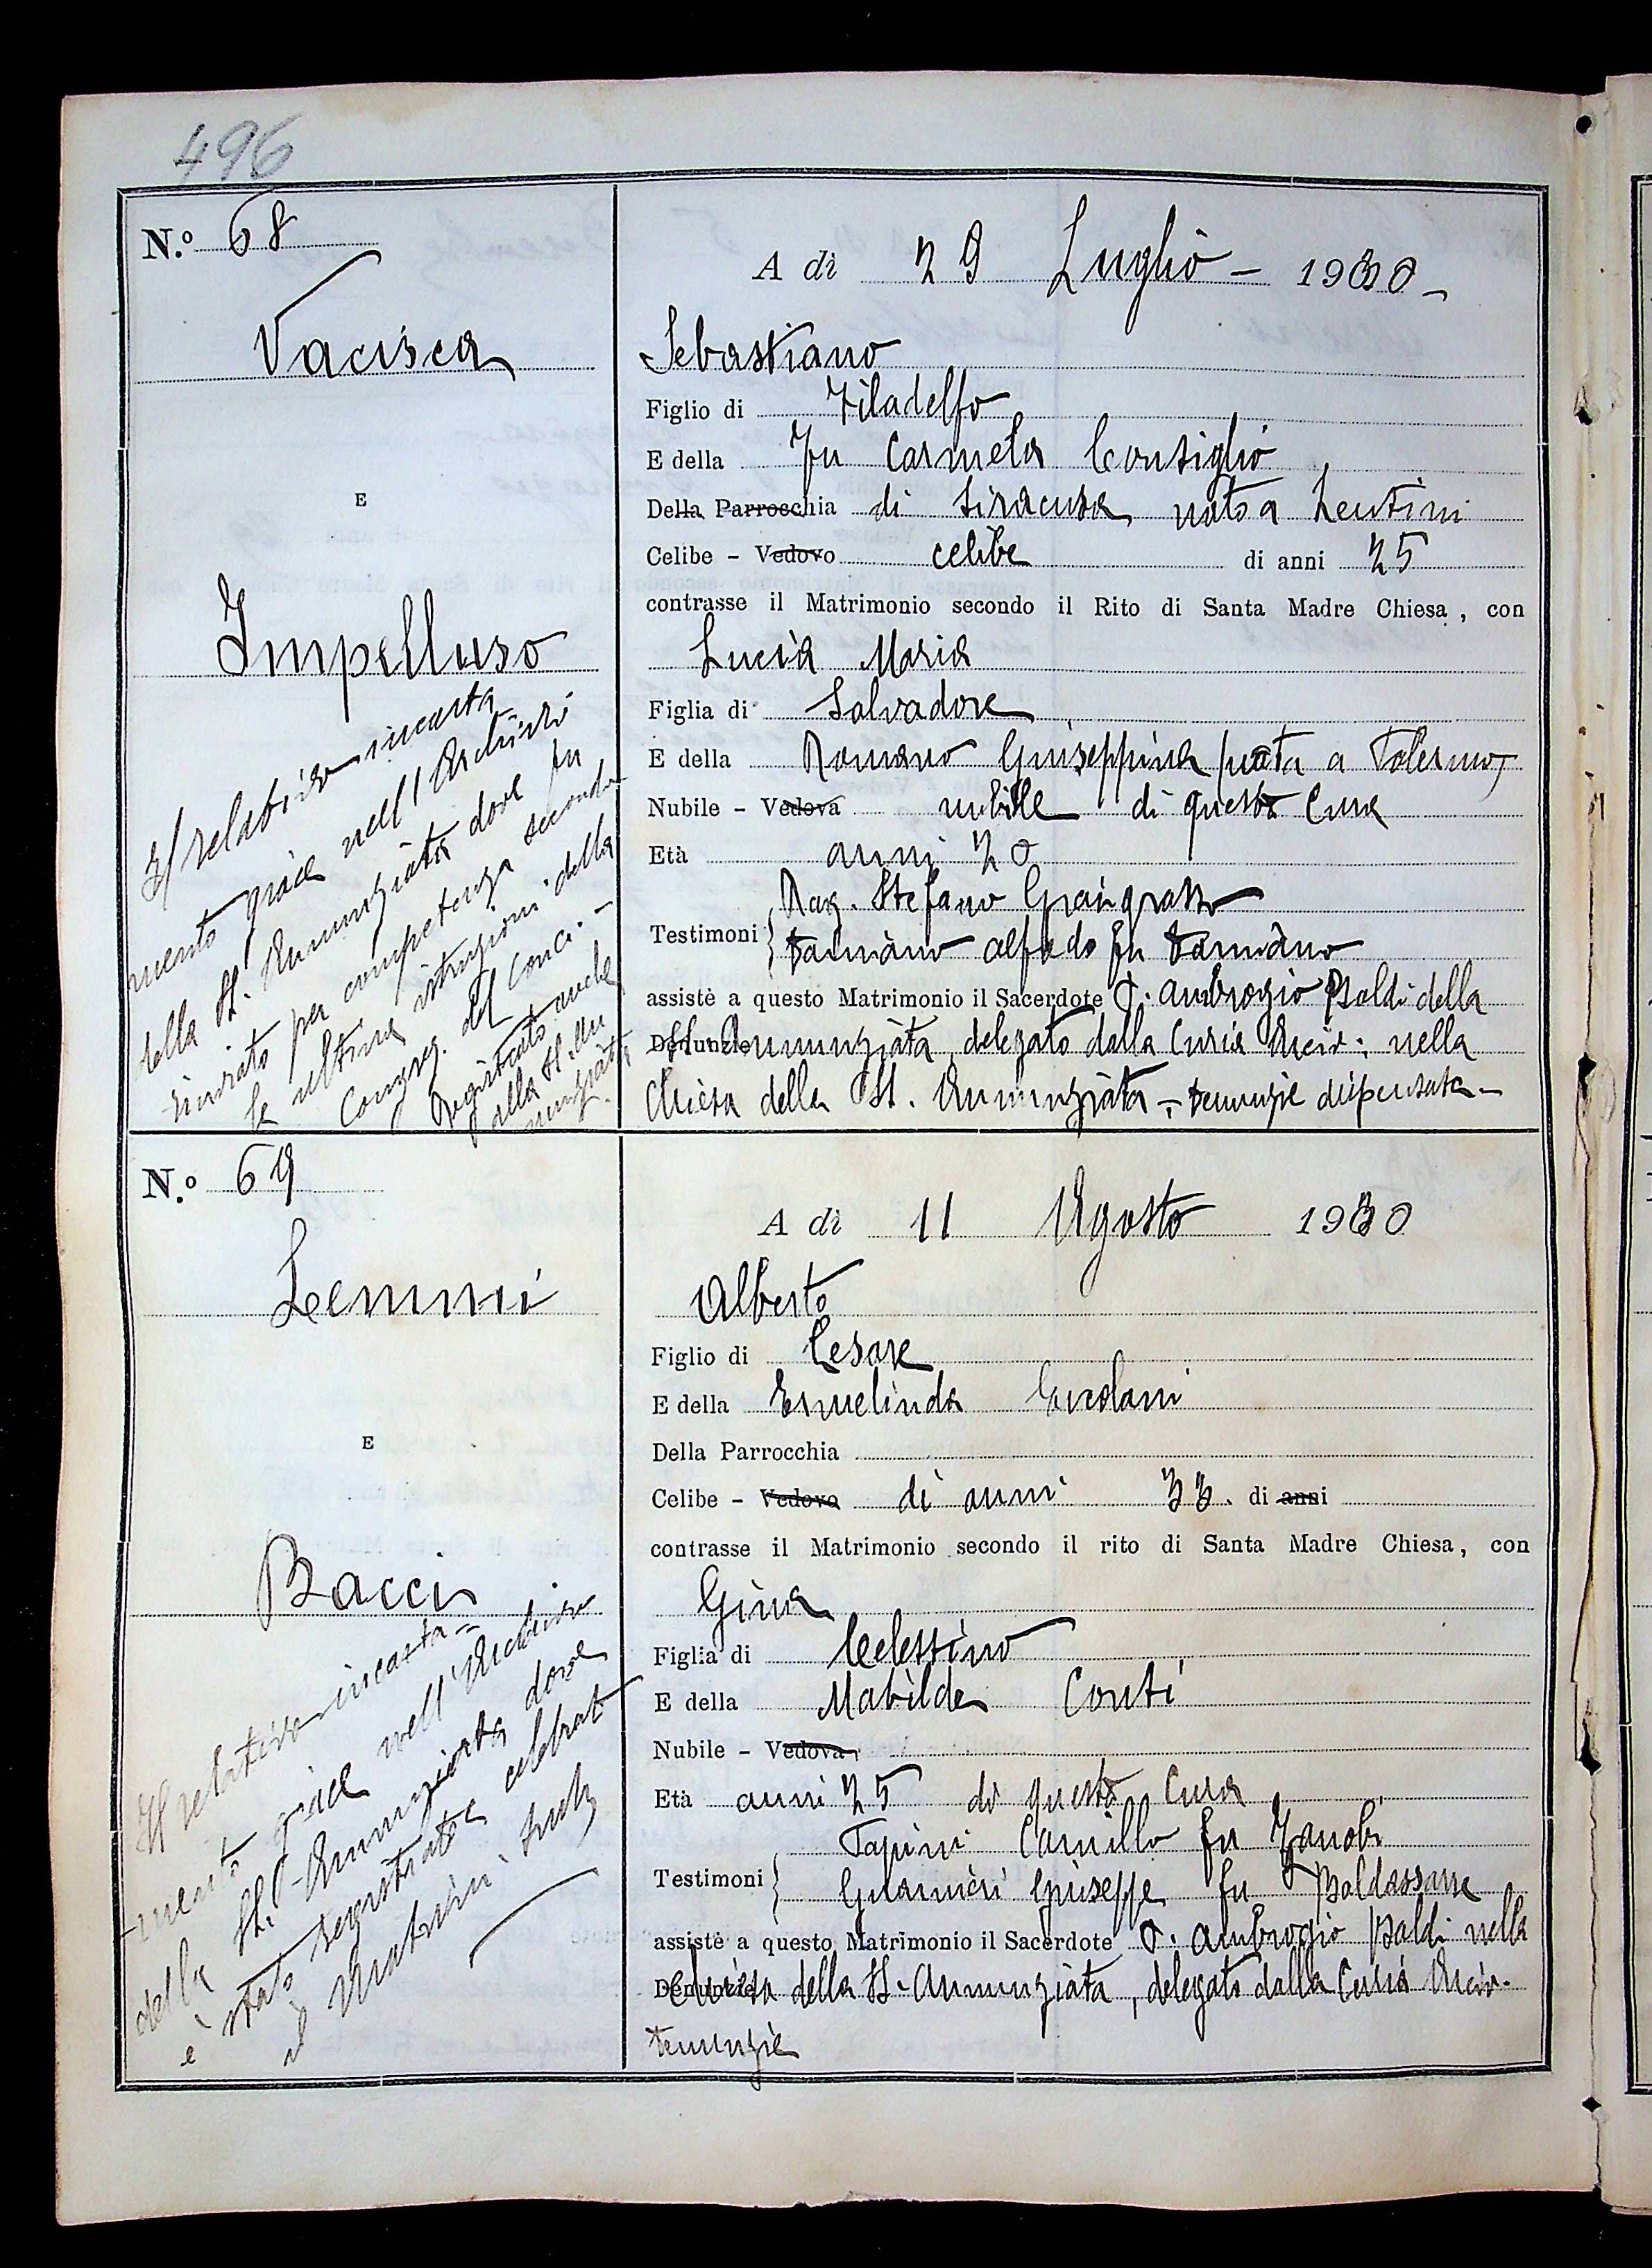 496
N.º 68
Vacirca
E
Impelluso
Il relativo incarta
mento giace nell'Archivio
della SS. Annunziata dove fu
rinviato per competenza secondo
le ultime istruzioni della
Congreg. del Conci.-
Registrato anche
alla SS. An
nunziata.
A dì 29 Luglio - 1930 -
Sebastiano
Figlio di Filadelfo
E della fu Carmela Consiglio
Della Parrocchia di Siracusa, nato a Lentini
Celibe - Vedovo celibe di anni 25
contrasse il Matrimonio secondo il Rito di Santa Madre Chiesa, con
Lucia Maria
Figlia di Salvadore
E della Romano Giuseppina (nata a Palermo)
Nubile - Vedova nubile di questa Cura
Età anni 20
Rag. Stefano Giangrasso
Testimoni Damiano Alfredo fu Damiano
assistè a questo Matrimonio il Sacerdote P. Ambrogio Baldi della
Denunzie SS. Annunziata, delegato dalla Curia Arciv: nella
Chiesa della SS. Annunziata - denunzie dispensate -
N.º 69
Lemmi
E
Bacci
Il relativo incarta-
mento giace nell'Archivio
della SS. Annunziata dove
è stato registrato e celebrat
il Matrimonio
A dì 11 Agosto 1930
Alberto
Figlio di Cesare
E della Ermelinda Ercolani
Della Parrocchia
Celibe - Vedovo di anni 33. di anni
contrasse il Matrimonio secondo il rito di Santa Madre Chiesa, con
Gina
Figlia di Celestino
E della Matilde Conti
Nubile - Vedova
Età anni 25 di questa Cura
Tapini Camillo fu Zanobi
Testimoni Guarnieri Giuseppe fu Baldassarre
assistè a questo Matrimonio il Sacerdote P. Ambrogio Baldi nella
Denunzie Chiesa della SS. Annunziata, delegato dalla Curia Arciv.
denunzie